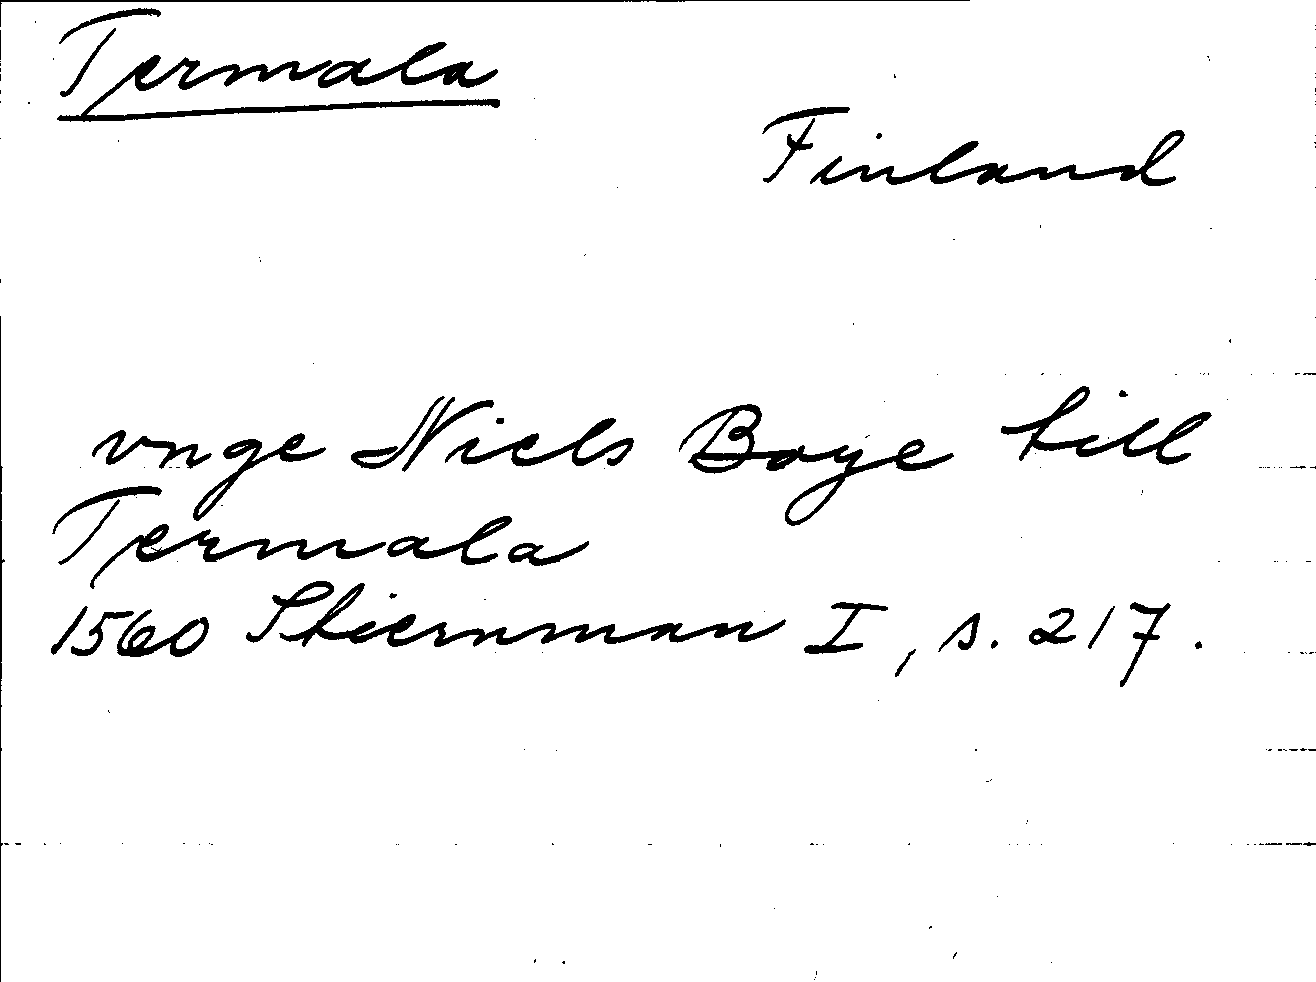 Termala
Finland
vnge Niels Boye till
Termala
1560 Stiernman I, s. 217.